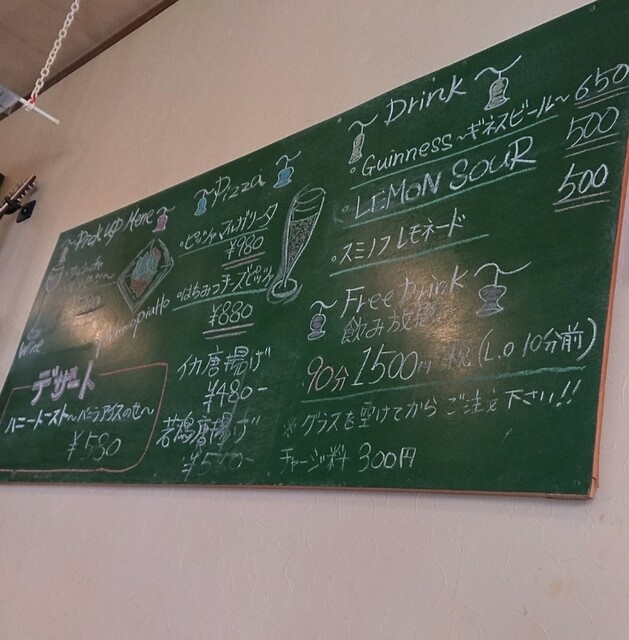 Pick up Menu
Wine
デザート
ハニートースト~バニラアイスのせ~
¥580
Pizza
・ピッツァ マルガリータ
¥980
・はちみつチーズピッツァ
¥880
イカ唐揚げ
¥480-
若鶏唐揚げ
Drink
・Guinness~ギネスビール~ 650
・LEMON SOUR 500
・スミノフレモネード 500
Free Drink
飲み放題
90分 1500円 (L.O 10分前)
※グラスを空けてからご注文下さい!!
チャージ料 300円